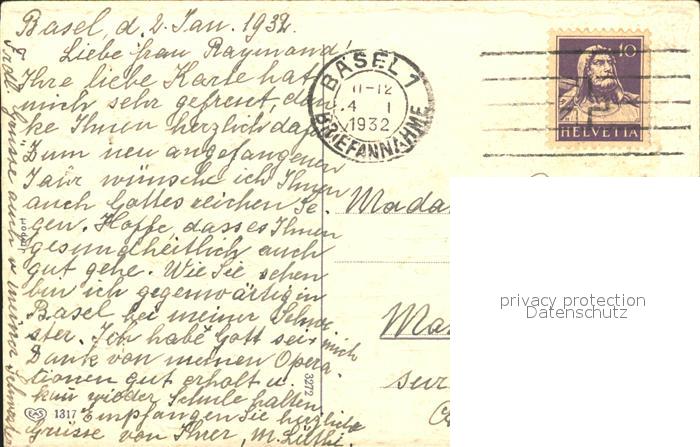 Basel, d. 2. Jan. 1932.
Liebe Frau Raymond!
Ihre liebe Karte hat
mich sehr gefreut, dan
ke Ihnen herzlich dafür
Zum neu angefangenen
Jahr wünsche ich Ihnen
auch Gottes reichen Se-
gen. Hoffe, dass es Ihnen
gesundheitlich auch
gut gehe. Wie Sie sehen
bin ich gegenwärtig in
Basel bei meiner Schwe-
ster. Ich habe Gott sei
Dank von meinen Opera-
mich
tionen gut erholt u.
kann wieder Schule halten.
Empfangen Sie herzliche
Grüsse von Ihrer, M. Lüthi.
Grüsse auch v. meiner Schwester
BASEL 1
11-12
4 I
1932
BRIEFANNAHME
10
HELVETIA
Mada
Ma
sur
privacy protection
Datenschutz
3272
EAS 1317